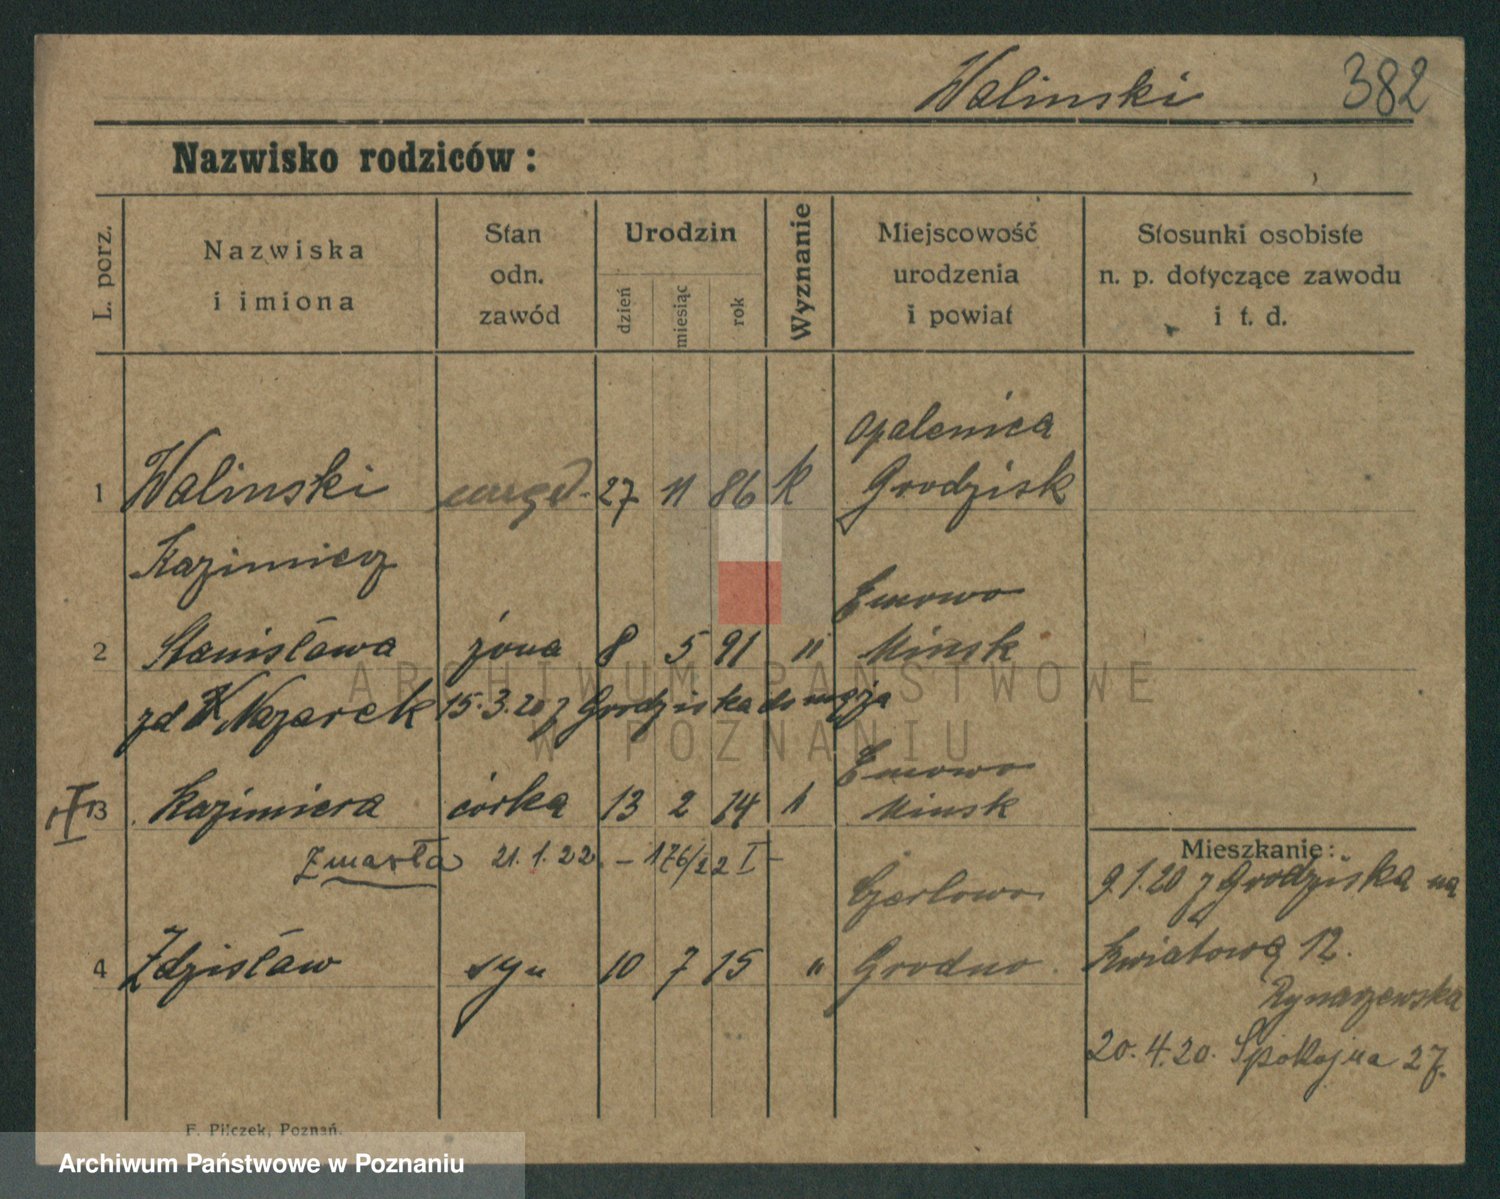 Walinski 382
Nazwisko rodziców:
L. porz.
Nazwiska
i imiona
Stan
odn.
zawód
Urodzin
dzień
miesiąc
rok
Wyznanie
Miejscowość
urodzenia
i powiat
Stosunki osobiste
n. p. dotyczące zawodu
i t. d.
Opalenica
1 Walinski 27 11 86 K Grodzisk
Kazimierz
Emowo
2 Stanisława żona 8 5 91 " Minsk
zd Nazarek 15.3.20 z Grodziska do męża
Emowo
13 Kazimiera córka 13 2 14 " Minsk
Zmarła 21.1.22. – 176/22 I –
Mieszkanie:
9.1.20 z Grodziska na
Czerlowo
4 Zdzisław syn 10 7 15 " Grodno.
Kwiatową 12.
Rynarzewska
20.4.20. Spokojna 27.
F. Pilczek, Poznań.
ARCHIWUM PAŃSTWOWE
W POZNANIU
Archiwum Państwowe w Poznaniu